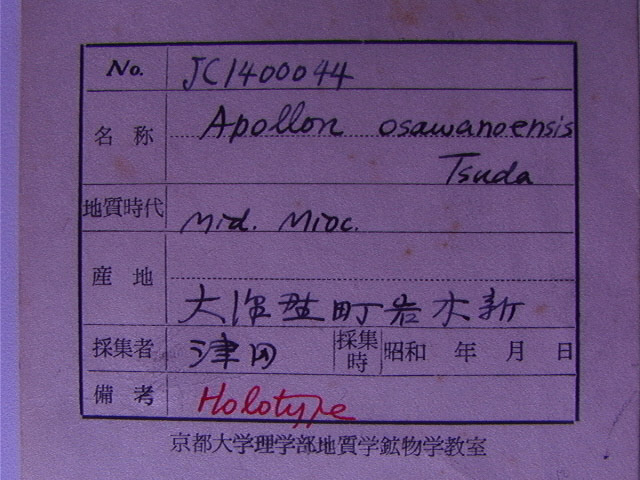 No. JC1400044
名称 Apollon osawanoensis
Tsuda
地質時代 Mid. Mioc.
産地
大沢野町岩木新
採集者 津田 採集時 昭和 年 月 日
備考 Holotype
京都大学理学部地質学鉱物学教室